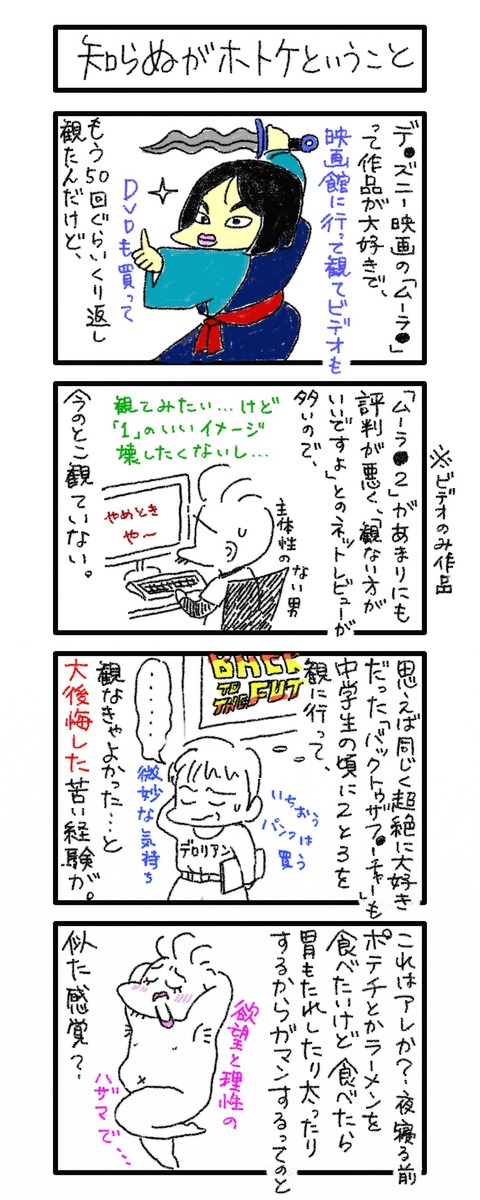 知らぬがホトケということ
デ●ズニー映画の「ムーラ●」
って作品が大好きで、
映画館に行って観てビデオも
DVDも買って
もう50回ぐらいくり返し
観たんだけど、
※ビデオのみ作品
「ムーラ●2」があまりにも
評判が悪く、「観ない方が
いいですよ」とのネットレビューが
多いので、
観てみたい…けど
「1」のいいイメージ
壊したくないし…
やめとき
や〜
主体性の
ない男
今のとこ観ていない。
思えば同じく超絶に大好き
だった「バックトゥザフ●ーチャー」も
中学生の頃に2と3を
観に行って、
BACK
TO
THE FUT
……
いちおう
パンフは
買う
デロリアン
微妙な気持ち
観なきゃよかった…と
大後悔した苦い経験が。
これはアレか?夜寝る前
ポテチとかラーメンを
食べたいけど食べたら
胃もたれしたり太ったり
するからガマンするってのと
欲望と理性の
ハザマで…
似た感覚?